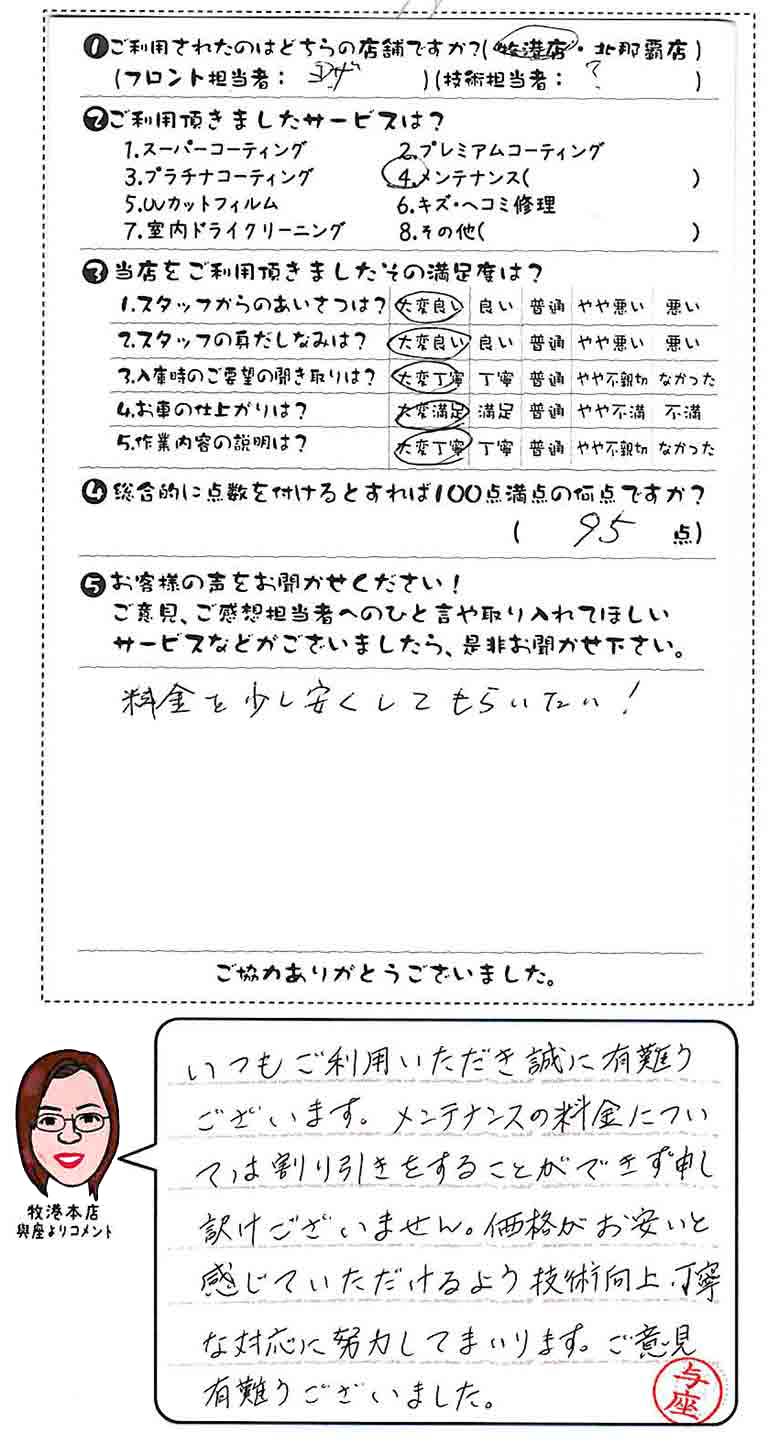 ❶ご利用されたのはどちらの店舗ですか?(牧港店・北那覇店)
(フロント担当者: ヨザ )(技術担当者: ? )
❷ご利用頂きましたサービスは?
1.スーパーコーティング 2.プレミアムコーティング
3.プラチナコーティング 4.メンテナンス( )
5.UVカットフィルム 6.キズ・ヘコミ修理
7.室内ドライクリーニング 8.その他( )
❸当店をご利用頂きましたその満足度は?
1.スタッフからのあいさつは? 大変良い 良い 普通 やや悪い 悪い
2.スタッフの身だしなみは? 大変良い 良い 普通 やや悪い 悪い
3.入庫時のご要望の聞き取りは? 大変丁寧 丁寧 普通 やや不親切 なかった
4.お車の仕上がりは? 大変満足 満足 普通 やや不満 不満
5.作業内容の説明は? 大変丁寧 丁寧 普通 やや不親切 なかった
❹総合的に点数を付けるとすれば100点満点の何点ですか?
( 95 点)
❺お客様の声をお聞かせください!
ご意見、ご感想担当者へのひと言や取り入れてほしい
サービスなどがございましたら、是非お聞かせ下さい。
料金を少し安くしてもらいたい!
ご協力ありがとうございました。
いつもご利用いただき誠に有難う
ございます。メンテナンスの料金につい
ては割り引きをすることができず申し
訳けございません。価格がお安いと
感じていただけるよう技術向上、丁寧
な対応に努力してまいります。ご意見
有難うございました。
与座
牧港本店
與座よりコメント